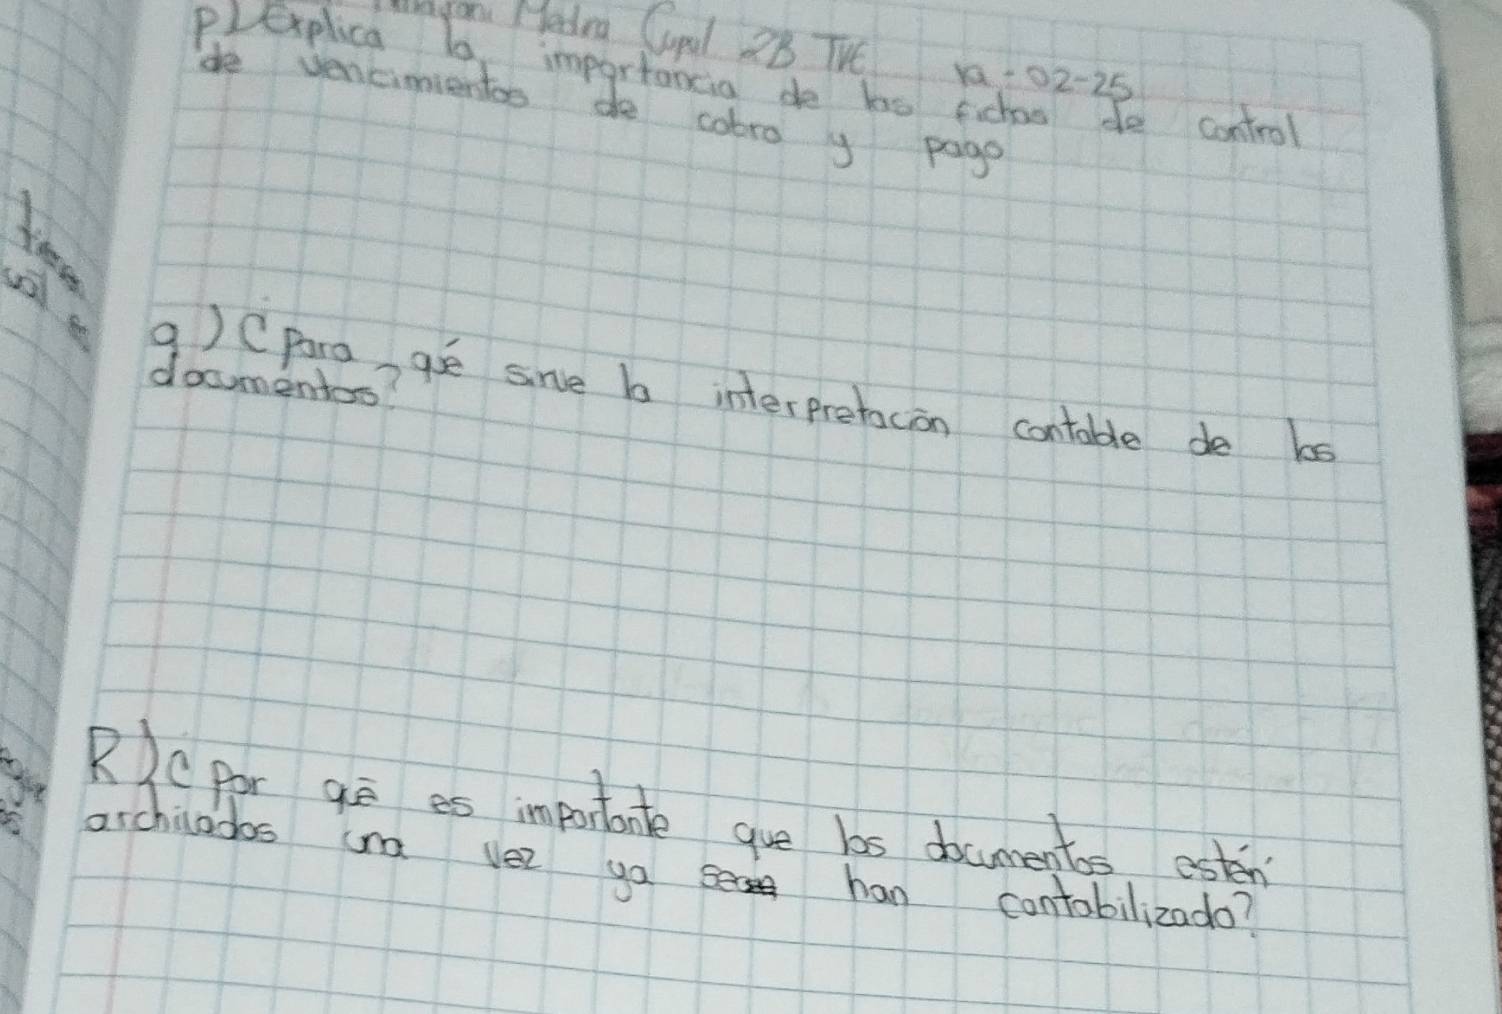 Madra Cupul 2B TVE -02-25
P) Explica la importancia de las fichas de control
de vencimientos de cobro y pago
q) ¿Para qué sirve la interpretación contable de los
documentos?
R) ¿Por qué es importante que los documentos estén
archivados una vez ya han contabilizado?